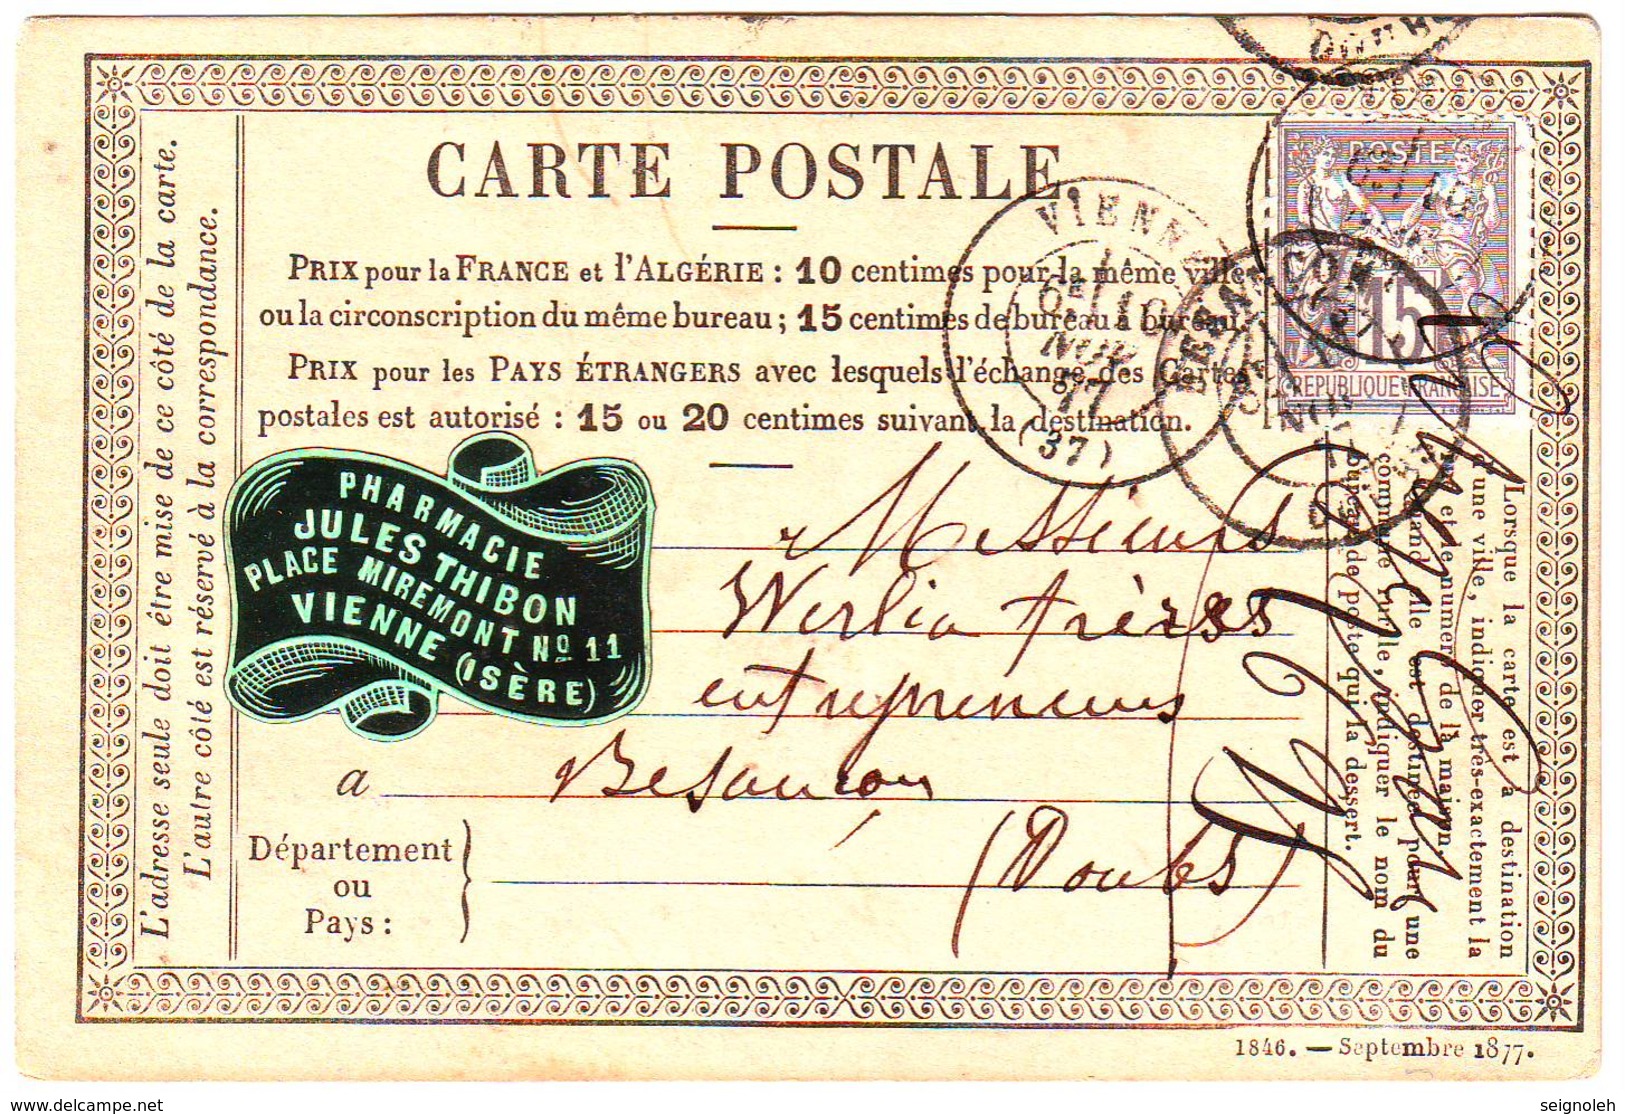 CARTE POSTALE
PRIX pour la FRANCE et l'ALGÉRIE : 10 centimes pour la même ville
ou la circonscription du même bureau ; 15 centimes de bureau à bureau.
PRIX pour les PAYS ÉTRANGERS avec lesquels l'échange des Cartes
postales est autorisé : 15 ou 20 centimes suivant la destination.
L'adresse seule doit être mise de ce côté de la carte.
L'autre côté est réservé à la correspondance.
POSTE
15
REPUBLIQUE FRANÇAISE
VIENNE
NOV
77
(37)
BESANCON
NOV
PHARMACIE
JULES THIBON
PLACE MIREMONT No 11
VIENNE (ISÈRE)
Messieurs
Werlia frères
entrepreneurs
a Besancon
Département
ou
Pays :
(Doubs)
Lorsque la carte est à destination
d'une ville, indiquer très-exactement la
rue et le numéro de la maison.
Quand elle est destinée pour une
commune rurale, indiquer le nom du
bureau de poste qui la dessert.
1846. — Septembre 1877.
www.delcampe.net
seignoleh